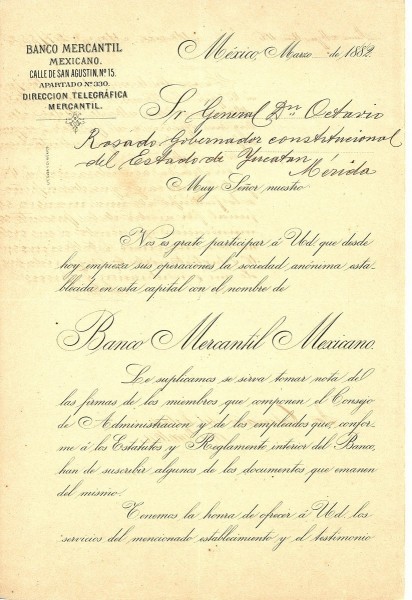 BANCO MERCANTIL
MEXICANO.
CALLE DE SAN AGUSTIN, Nº 15.
APARTADO Nº 330.
DIRECCION TELEGRÁFICA
MERCANTIL.
México, Marzo de 1882.
Sr General Dn Octavio
Rosado Gobernador constitucional
del Estado de Yucatan
Mérida
Muy Señor nuestro
Nos es grato participar á Ud que desde
hoy empieza sus operaciones la sociedad anónima esta-
blecida en esta capital con el nombre de
Banco Mercantil Mexicano.
Le suplicamos se sirva tomar nota de
las firmas de los miembros que componen el Consejo
de Administracion y de los empleados que, confor-
me á los Estatutos y Reglamento interior del Banco,
han de suscribir algunos de los documentos que emanen
del mismo.
Tenemos la honra de ofrecer á Ud. los
servicios del mencionado establecimiento y el testimonio